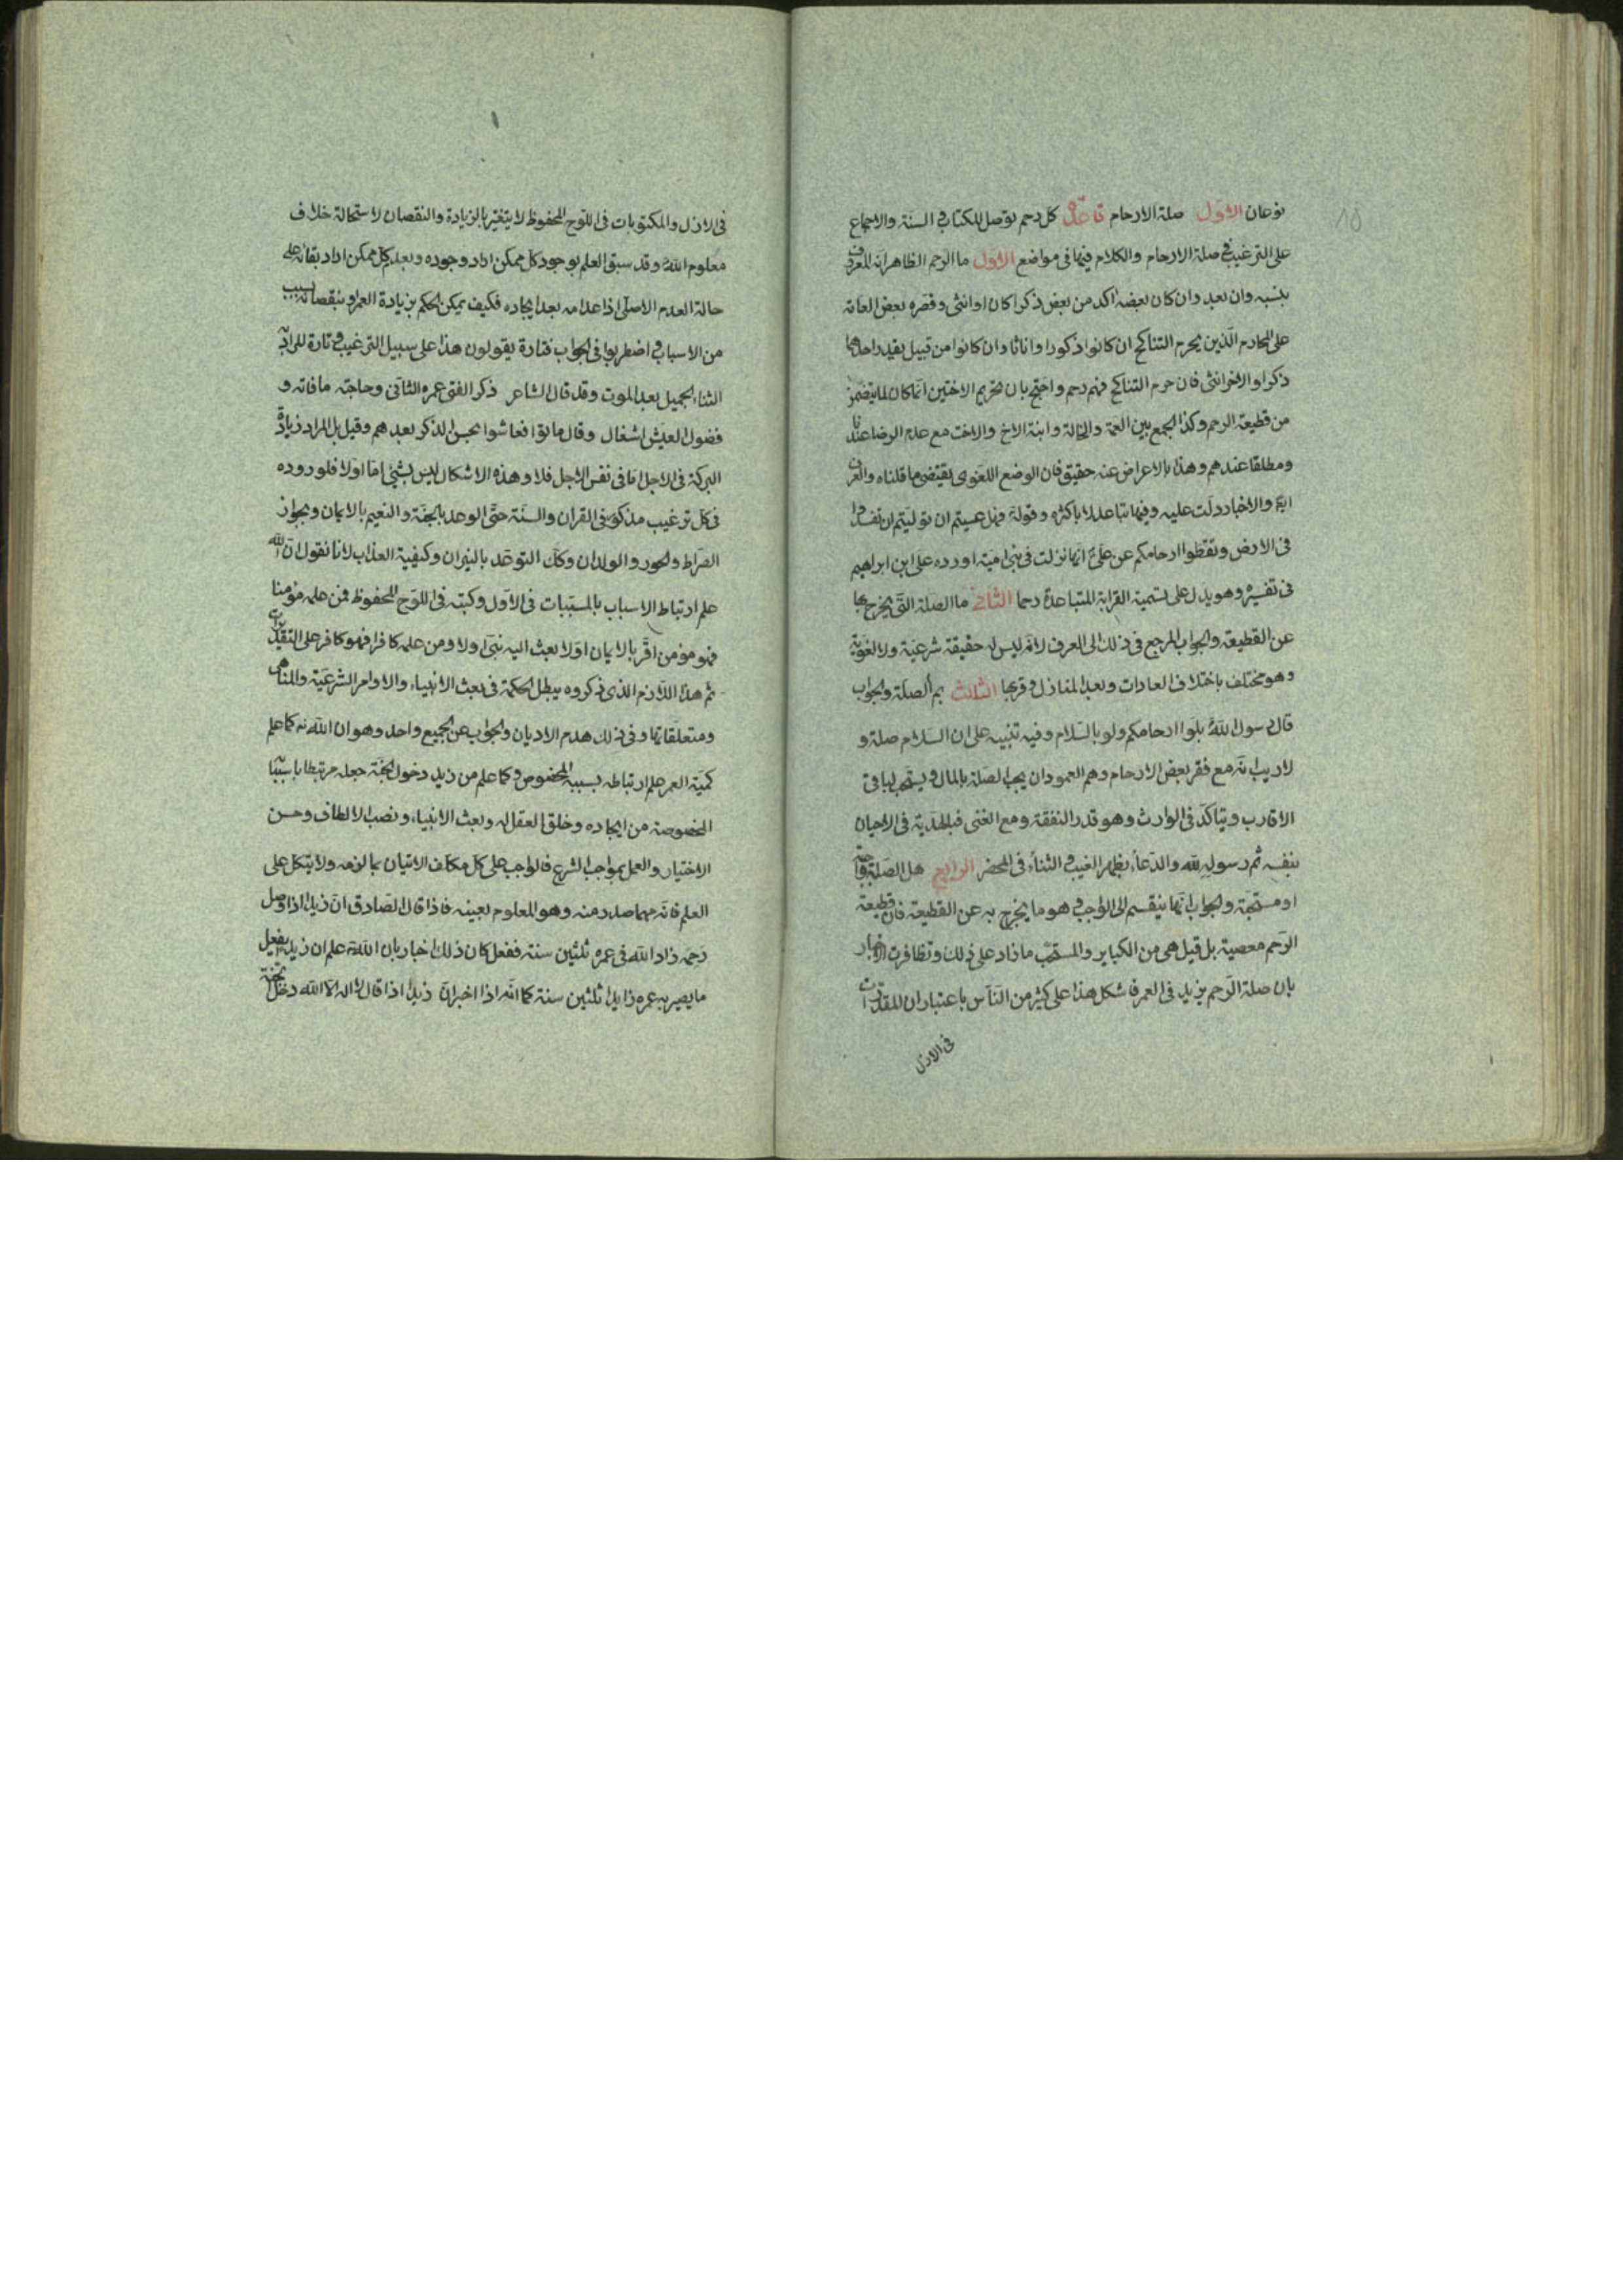 ١٥
نوعان الاول صلة الارحام قاعدة كل رحم يوصل للكتاب و السنة والاجماع
على الترغيب فى صلة الارحام والكلام فيها فى مواضع الاول ما الرحم الظاهر انه المعروف
بنسبه وان بعد وان كان بعضه اكد من بعض ذكرا كان او انثى وقصره بعض العامه
على المحارم الذين يحرم التناكح ان كانوا ذكورا واناثا وان كانوا من قبيل يقدر احدهما
ذكرا والاخر انثى فان حرم التناكح فهم رحم واحتج بان تحريم الاختين انما كان لما يتضمن
من قطيعة الرحم وكذا الجمع بين العمة والخالة وابنة الاخ والاخت مع عدم الرضا عندنا
ومطلقا عندهم وهذا بالاعراض عنه حقيق فان الوضع اللغوى يقتضى ما قلناه والعرف
ايضا والاخبار دلت عليه وفيها تباعد لا باكثره وقوله فهل عسيتم ان توليتم ان تفسدوا
فى الارض وتقطعوا ارحامكم عن على انها نزلت فى بنى امية اورده على ابن ابراهيم
فى تفسيره وهو يدل على تسمية القرابة المتباعدة رحما الثانى ما الصلة التى يخرج بها
عن القطيعة والجواب المرجع فى ذلك الى العرف لانه ليس له حقيقة شرعية ولا لغوية
وهو مختلف باختلاف العادات وبعد المنازل وقربها الثالث بم الصلة والجواب
قال رسول الله بلوا ارحامكم ولو بالسلام وفيه تنبيه على ان السلام صلة و
لا ريب انه مع فقر بعض الارحام وهم العمودان يجب الصلة بالمال ويستحب لباقى
الاقارب ويتاكد فى الوارث وهو قدر النفقة ومع الغنى فبالهدية فى الاحيان
بنفسه ثم رسوله والدعاء بظهر الغيب و الثناء فى المحضر الرابع هل الصلة واجبة
او مستحبة والجواب انها ينقسم الى الواجب و هو ما يخرج به عن القطيعة فان قطيعة
الرحم معصية بل قيل هى من الكباير والمستحب ما زاد على ذلك وتظافرت الاخبار
بان صلة الرحم يزيد فى العمر فاشكل هذا على كثير من الناس باعتبار ان المقدرات
فى الازل
فى الازل والمكتوبات فى اللوح المحفوظ لا يتغير بالزيادة والنقصان لاستحالة خلاف
معلوم الله وقد سبق العلم بوجود كل ممكن اراد وجوده وبعدم كل ممكن اراد بقائه على
حالة العدم الاصلى اذا عدامه بعد ايجاده فكيف يمكن الحكم بزيادة العمر او بنقصانه بسبب
من الاسباب و اضطربوا فى الجواب فتارة يقولون هذا على سبيل الترغيب و تارة المراد به
الثناء الجميل بعد الموت وقد قال الشاعر ذكر الفتى عمره الثانى وحاجته ما فاته و
فضول العيش اشغال وقال ماتوا فعاشوا بحسن الذكر بعدهم وقيل بل المراد زيادة
البركة فى الاجل اما فى نفس الاجل فلا وهذه الاشكال ليس بشئ اما اولا فلوروده
فى كل ترغيب مذكور فى القران والسنة حتى الوعد بالجنة والنعيم بالايمان وبجواز
الصراط والحور والولدان وكك التوعد بالنيران وكيفية العذاب لانا نقول ان الله
علم ارتباط الاسباب بالمسببات فى الاول وكبته فى اللوح المحفوظ فمن علمه مؤمنا
فهو مؤمن اقر بالايمان اولا بعث اليه نبى اولا ومن علمه كافرا فهو كافر على التقديرين
ثم هذا اللازم الذى ذكروه يبطل الحكمة فى بعث الانبياء والاوامر الشرعية والمناهى
ومتعلقاتها وفى ذلك هدم الاديان والجواب عن الجميع واحد وهو ان الله كما علم
كمية العمر علم ارتباطه بسببه المخصوص وكما علم من زيد دخول الجنة جعله مرتبطا باسبابها
المخصوصة من ايجاده وخلق العقل له وبعث الانبياء ونصب الالطاف وحسن
الاختيار والعمل بموجب الشرع فالواجب على كل مكلف الاتيان بما لزمه ولا يتكل على
العلم فانه مهما صدر منه وهو المعلوم بعينه فاذا قال الصادق ان زيدا اذا وصل
رحمه زاد الله فى عمره ثلثين سنة ففعل كان ذلك اخبار بان الله علم ان زيد يفعل
ما يصير به عمره زايدا ثلثين سنة كما انه اذا اخبر ان زيدا اذا قال لا اله الا الله دخل الجنة